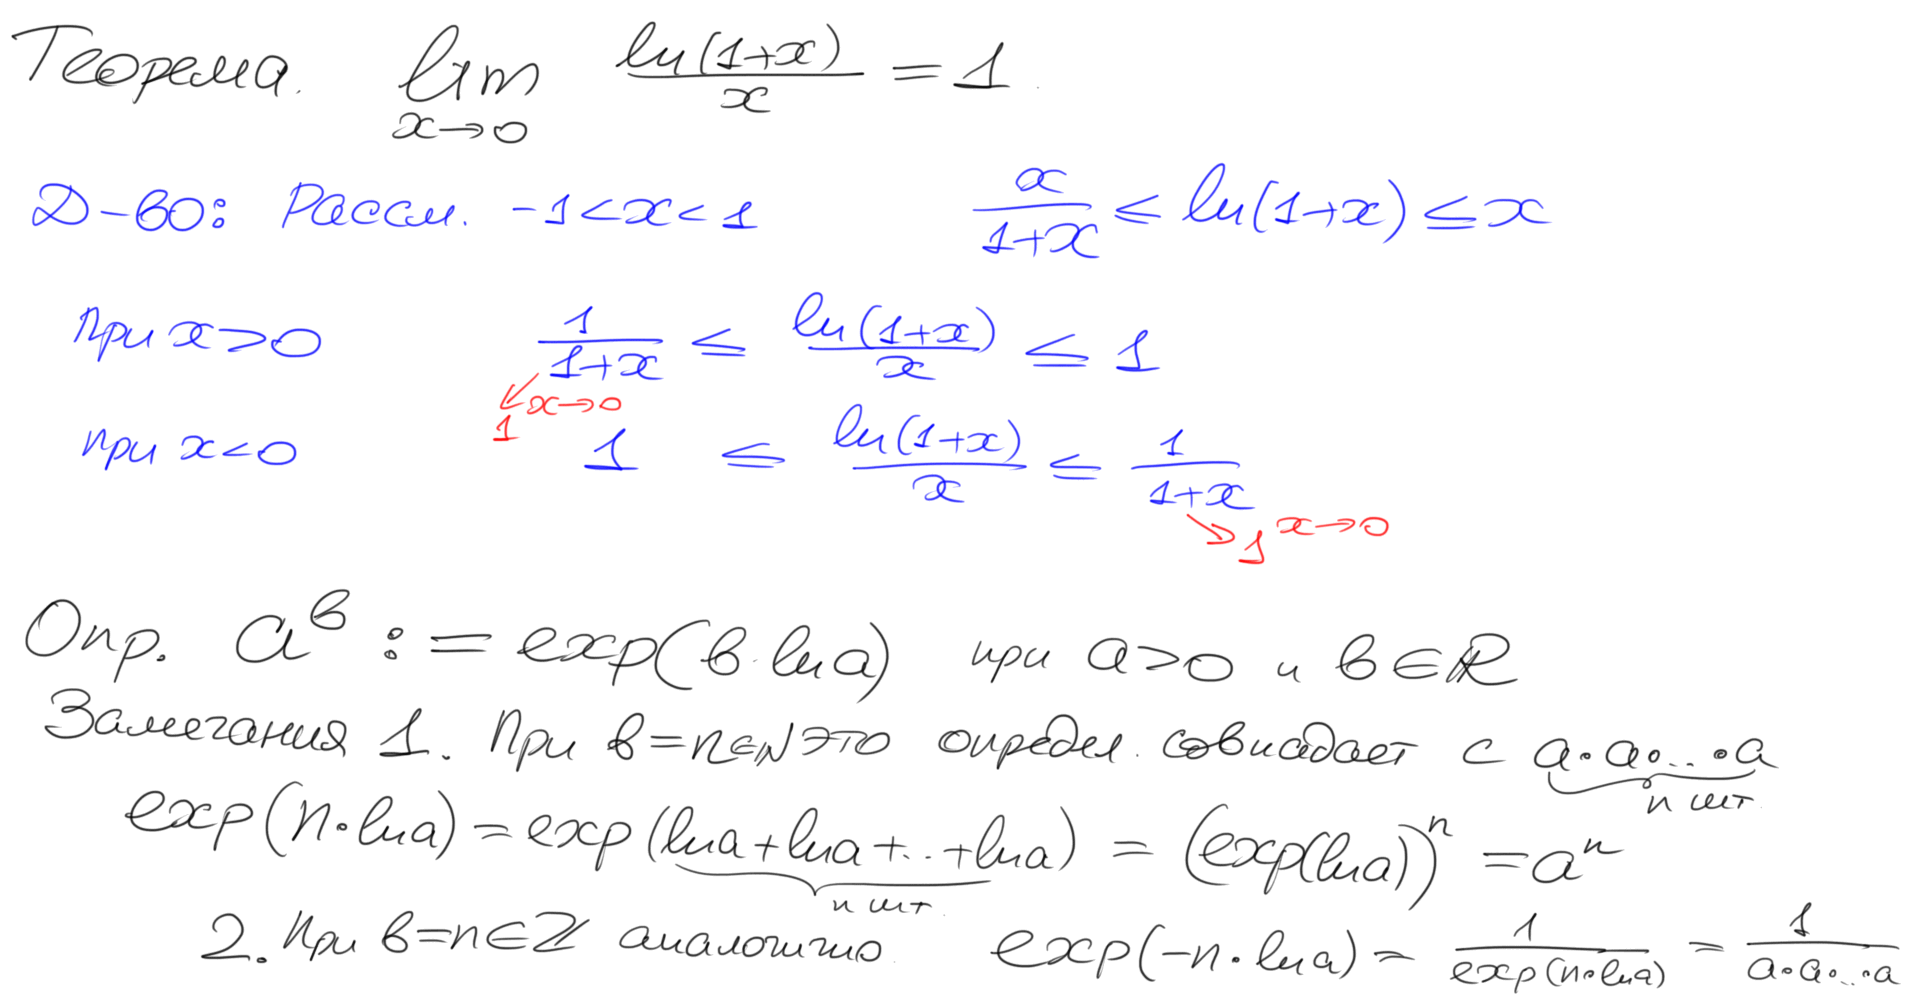 Теорема. lim_{x→0} ln(1+x)/x = 1.
Д-во: Рассм. -1<x<1    x/(1+x) ≤ ln(1+x) ≤ x
при x>0    1/(1+x) ≤ ln(1+x)/x ≤ 1
↙ x→0
1
при x<0    1 ≤ ln(1+x)/x ≤ 1/(1+x)
↘ 1 x→0
Опр. a^b := exp(b·ln a) при a>0 и b∈ℝ
Замечания 1. При b=n∈ℕ это определ. совпадает с a·a·...·a
n шт.
exp(n·ln a) = exp(ln a+ln a+...+ln a) = (exp(ln a))^n = a^n
n шт.
2. При b=n∈ℤ аналогично exp(-n·ln a) = 1/exp(n·ln a) = 1/(a·a·...·a)